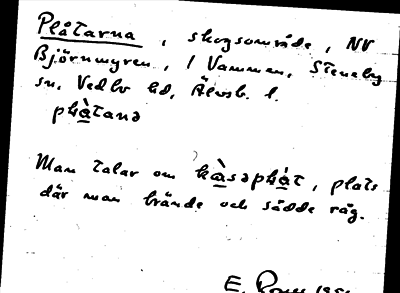 Plåtarna, skogsområde, NV
Björnmyren, i Vamman, Steneby
sn, Vedbo hd, Älvsb. l.
plåtana
Man talar om plåt, plats
där man brände och sådde råg.
E.